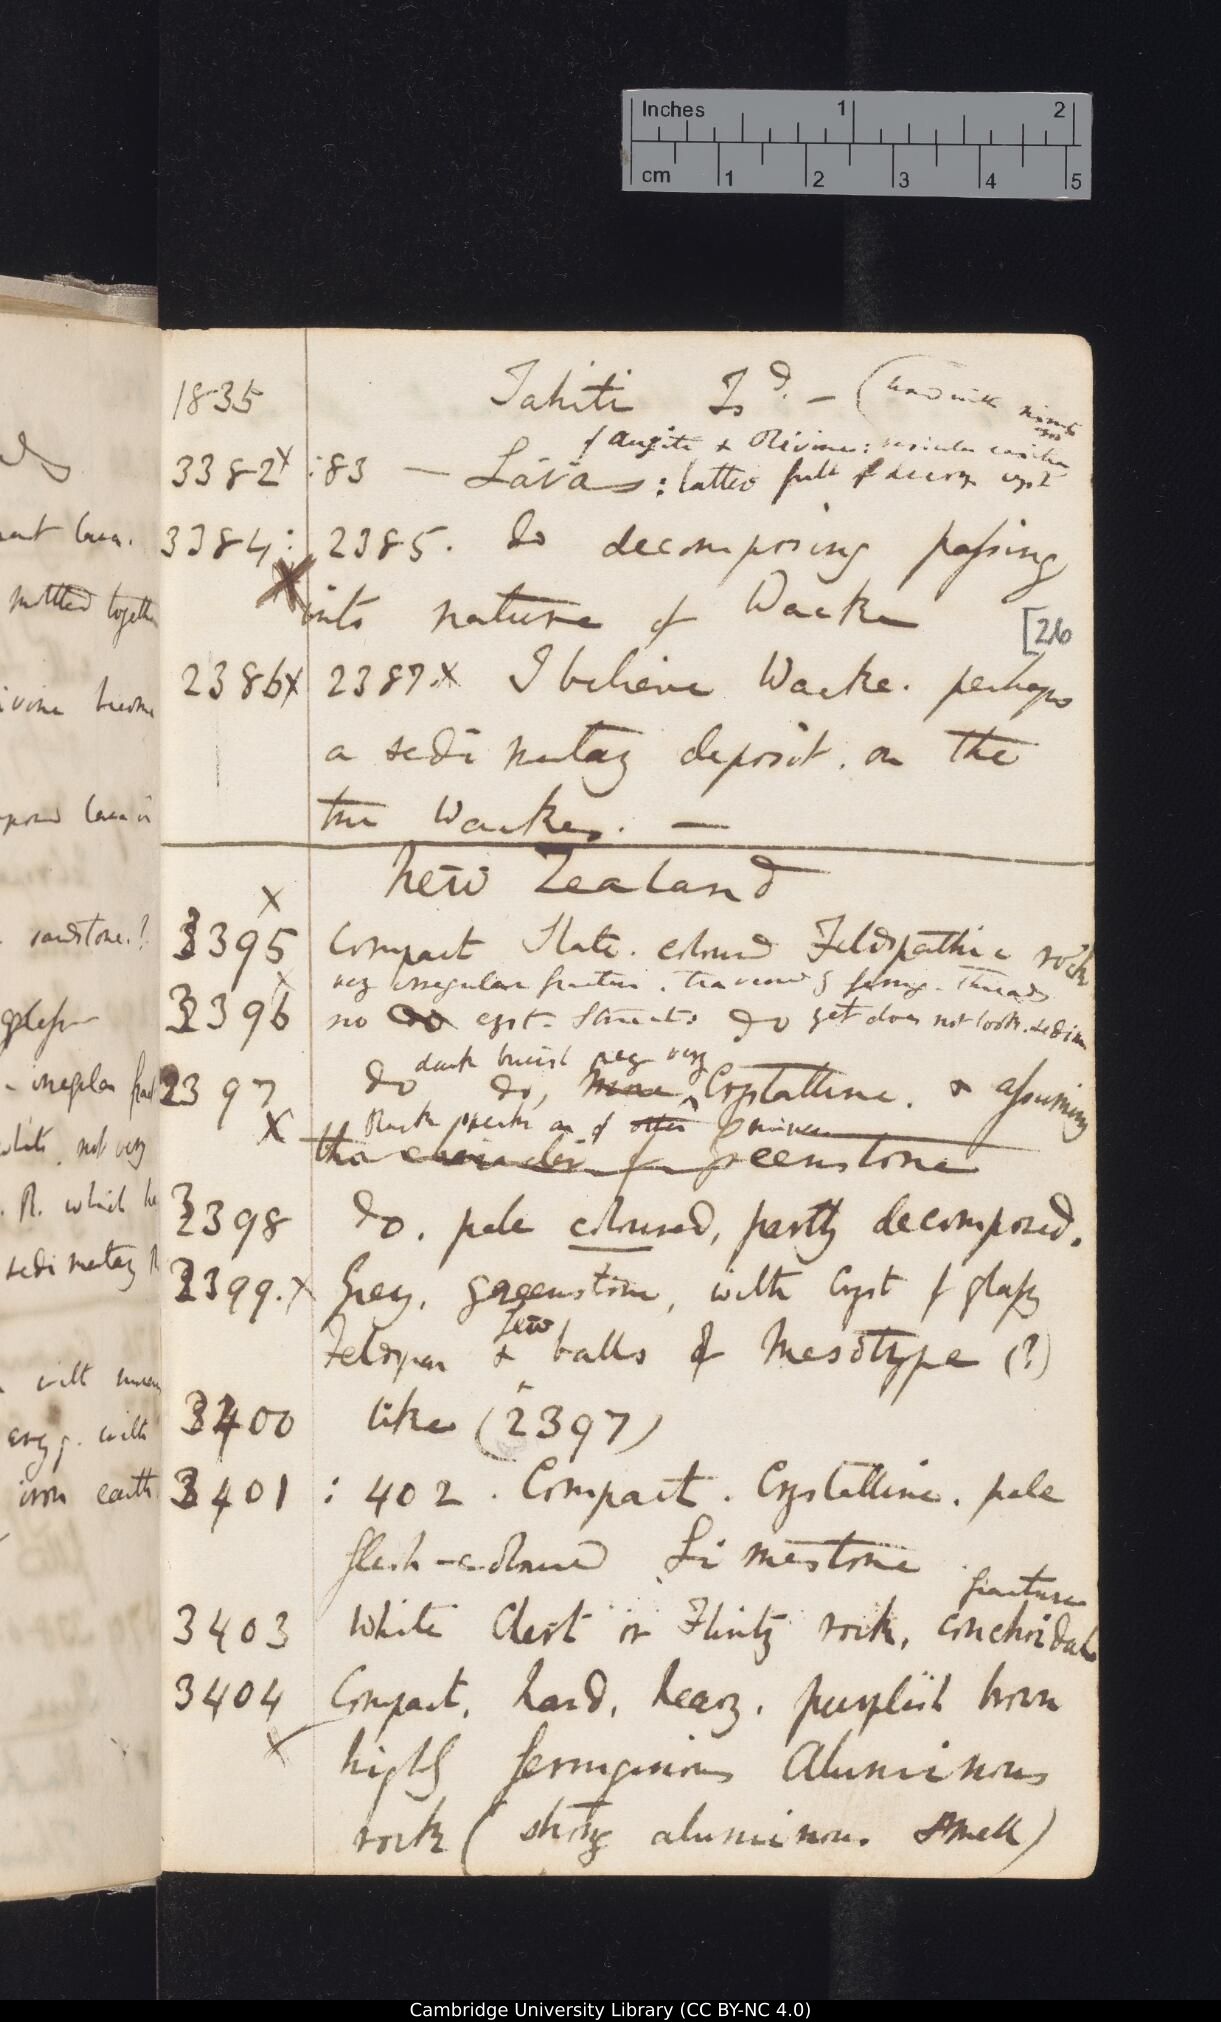 Inches 1 2
cm 1 2 3 4 5
1835 Tahiti Isd. — (
of Augite & Olivine: vesicular cavities
3382x :83 — Lavas: latter full of decomp cryst
3384: 2385. do decomposing passing
X into nature of Wacke
[26
2386x 2387.x I believe Wacke. perhaps
a sedimentary deposit. on the
true Wackes. —
New Zealand
x
3395 Compact Slate. coloured Feldspathic rock
x very irregular fracture. traversed by ferrug. threads
3396 no do cryst. structure do yet does not look. sedim
dark very
3397 do do, more Crystalline. & assuming
x Black specks are of other
the character of greenstone
3398 do. pale coloured, partly decomposed.
3399.x Grey. greenstone, with Cryst of glassy
few
Feldspar & balls of Mesotype (?)
3400 like (2397)
3401 : 402. Compact. Crystalline. pale
flesh-coloured Limestone
fracture
3403 White Chert or Flinty rock, conchoidal
3404 Compact, hard, heavy. purplish brown
x highly ferruginous Aluminous
rock (strong aluminous smell)
mottled together
sandstone.?
irregular
not very
R. which
sedimentary
with
with
iron earth
Cambridge University Library (CC BY-NC 4.0)